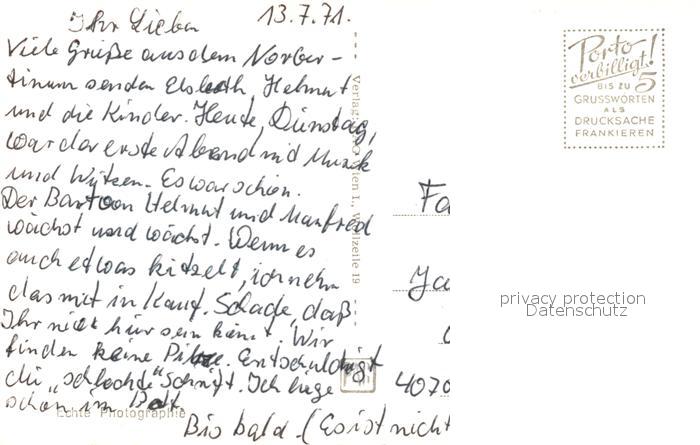 Ihr Lieben 13.7.71.
Viele Grüße aus dem Norber-
tinum senden Elsbeth, Helmut
und die Kinder. Heute, Dienstag,
war der erste Abend mit Musik
und Witzen. Es war schön.
Der Bart von Helmut und Manfred
wächst und wächst. Wenn es
auch etwas kitzelt, ich nehm
das mit in Kauf. Schade, daß
Ihr nicht hier sein könnt. Wir
finden keine Pilze. Entschuldigt
die "schlechte" Schrift. Ich liege
schon im Bett.
Bis bald. (Es ist nicht
Echte Photographie
Porto
verbilligt!
BIS ZU 5
GRUSSWORTEN
ALS
DRUCKSACHE
FRANKIEREN
Fa
Ja
4070
privacy protection
Datenschutz